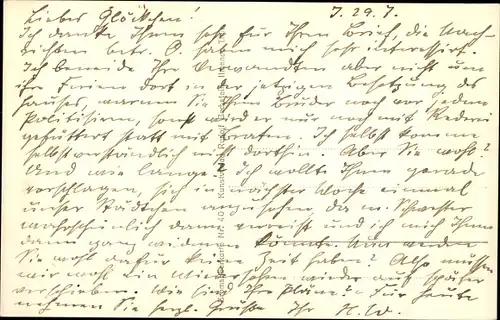 Liebes Glöckchen! J. 29.7.
Ich danke Ihnen sehr für Ihren Brief, die Nach-
richten betr. O. haben mich sehr interessiert.
Ich beneide Ihre Verwandten aber nicht um
ihre Ferien dort in der jetzigen Besetzung des
Hauses, warnen Sie Ihren Bruder nach vor jedem
Politisieren, sonst wird er nur noch mit Rederei
gefüttert statt mit Braten. Ich selbst komme
selbstverständlich nicht dorthin. Aber Sie wohl?
Und wie lange? Ich wollte Ihnen gerade
vorschlagen, sich in nächster Woche einmal
unser Städtchen anzusehen da m. Schwester
wahrscheinlich dann verreist und ich mich Ihnen
dann ganz widmen könnte. Nun werden
Sie wohl dafür keine Zeit haben? Also müssen
wir wohl ein Wiedersehen wieder auf später
verschieben. Wie sind Ihre Pläne? Für heute
nehmen Sie herzl. Grüße Ihr K.W.